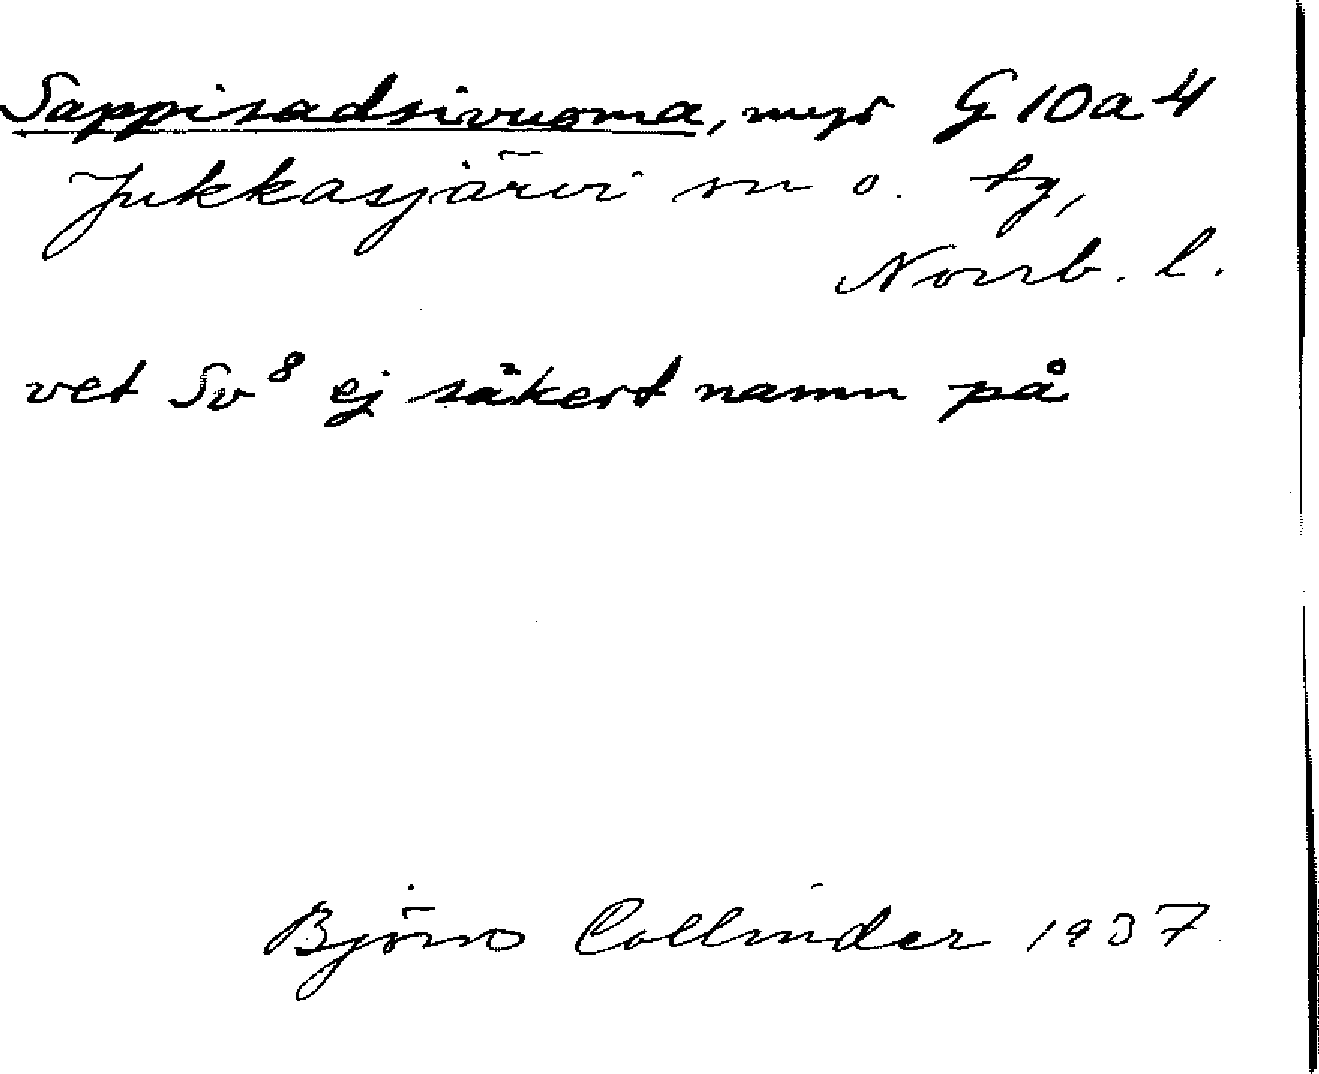 Sappisadsivuoma, myr G 10a4
Jukkasjärvi sn o. tg,
Norrb. l.
vet Sv⁸ ej säkert namn på
Björn Collinder 1937